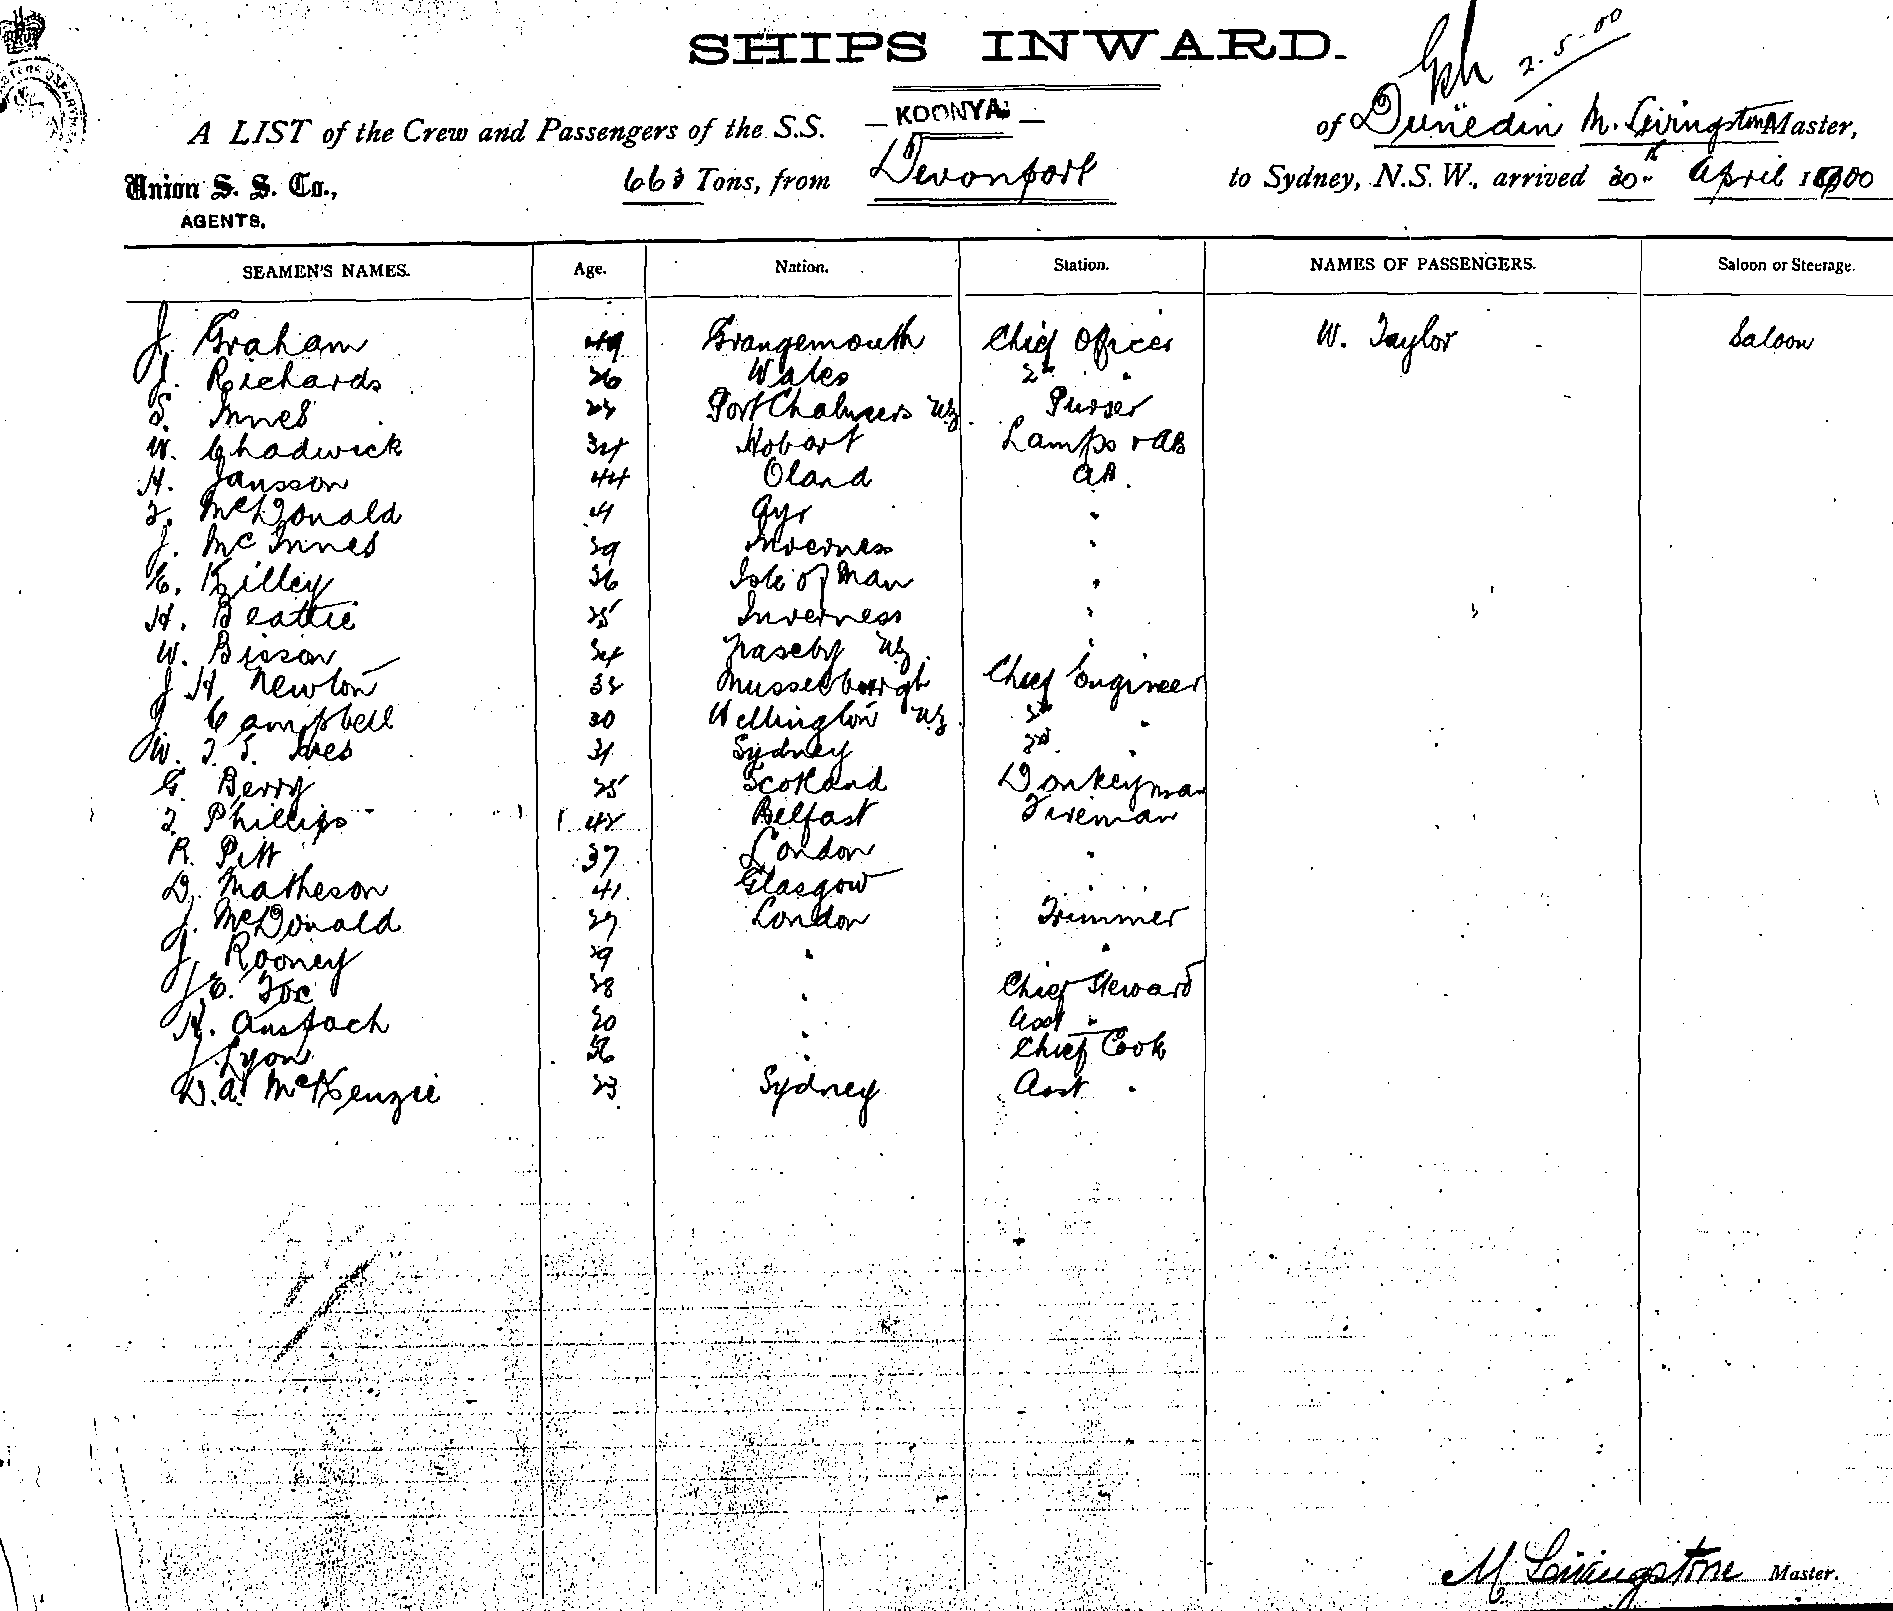 SHIPS INWARD.
2-5-00
A LIST of the Crew and Passengers of the S.S. KOONYA of Dunedin M. Livingstone Master,
Union S. S. Co., AGENTS. 663 Tons, from Devonport to Sydney, N.S.W., arrived 30th April 1900
SEAMEN'S NAMES. Age. Nation. Station. NAMES OF PASSENGERS. Saloon or Steerage.
J. Graham 49 Grangemouth Chief Officer W. Taylor Saloon
J. Richards 26 Wales 2nd "
S. Innes Port Chalmers NZ Purser
W. Chadwick 34 Hobart Lamps & AB
H. Jansson 44 Oland AB.
McDonald Ayr "
J. McInnes 39 Inverness "
C. Killey 36 Isle of Man "
H. Beattie 25 Inverness "
W. Bisson 34 Naseby NZ. "
J H Newton Musselburgh Chief Engineer
J Campbell 30 Wellington NZ 2nd "
W. J. S. Ives 31 Sydney 3rd "
G. Berry 25 Scotland Donkeyman
Phillips 42 Belfast Fireman
R. Pitt 37 London "
D. Matheson 41 Glasgow "
J. McDonald London Trimmer
J. Rooney 29 " "
J. E. Fox 38 " Chief Steward
H. Anspach " Asst "
J. Lyon 36 " Chief Cook
D. A. McKenzie 23 Sydney Asst "
M Livingstone Master.